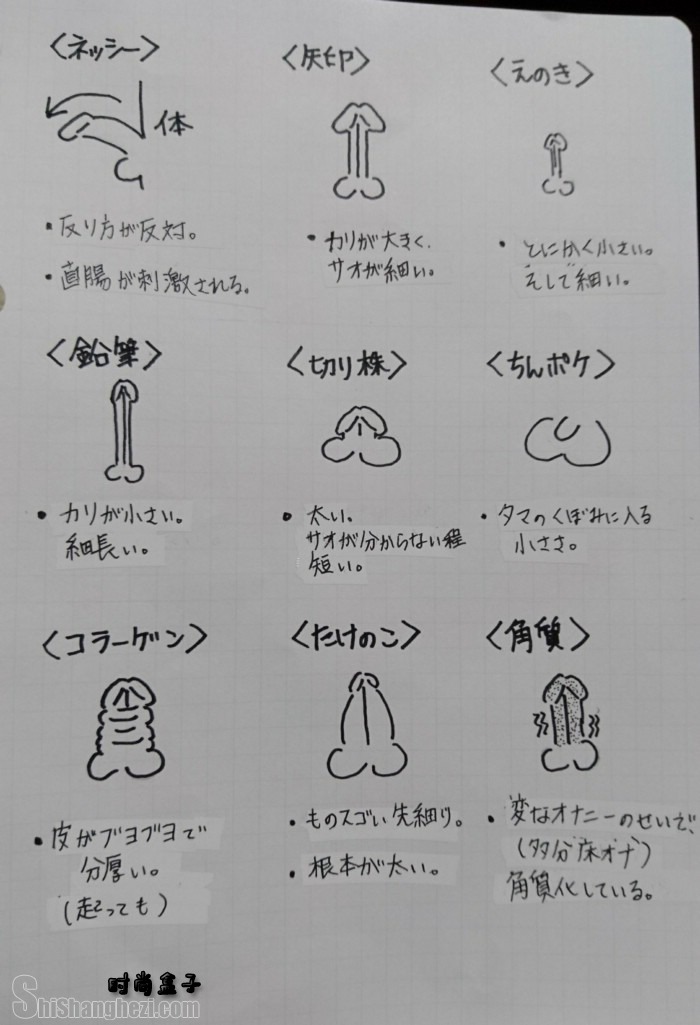 〈ネッシー〉
体
・反り方が反対。
・直腸が刺激される。
〈矢印〉
・カリが大きく、
サオが細い。
〈えのき〉
・とにかく小さい。
そして細い。
〈鉛筆〉
・カリが小さい。
細長い。
〈切り株〉
・太い。
サオが分からない程
短い。
〈ちんポケ〉
・タマのくぼみに入る
小ささ。
〈コラーゲン〉
・皮がブヨブヨで
分厚い。
(起っても)
〈たけのこ〉
・ものスゴい先細り。
・根本が太い。
〈角質〉
・変なオナニーのせいで、
(多分床オナ)
角質化している。
时尚盒子
Shishanghezi.com